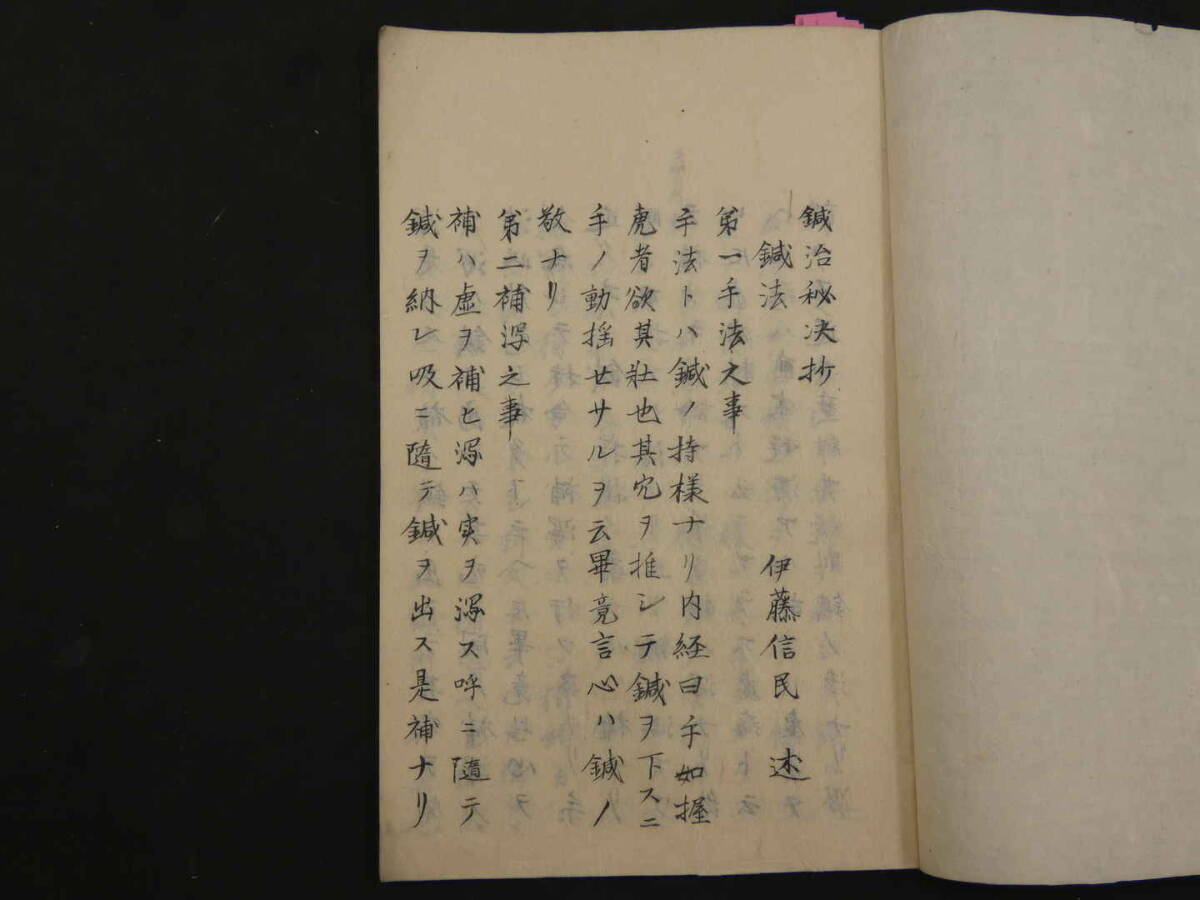 鍼治秘决抄
鍼法　伊藤信民 述
第一手法之事
手法トハ鍼ノ持様ナリ内経曰手如握
虎者欲其壯也其穴ヲ推シテ鍼ヲ下スニ
手ノ動揺セサルヲ云畢竟言心ハ鍼ノ
敬ナリ
第二補瀉之事
補ハ虚ヲ補ヒ瀉ハ実ヲ瀉ス呼ニ隨テ
鍼ヲ納レ吸ニ隨テ鍼ヲ出ス是補ナリ